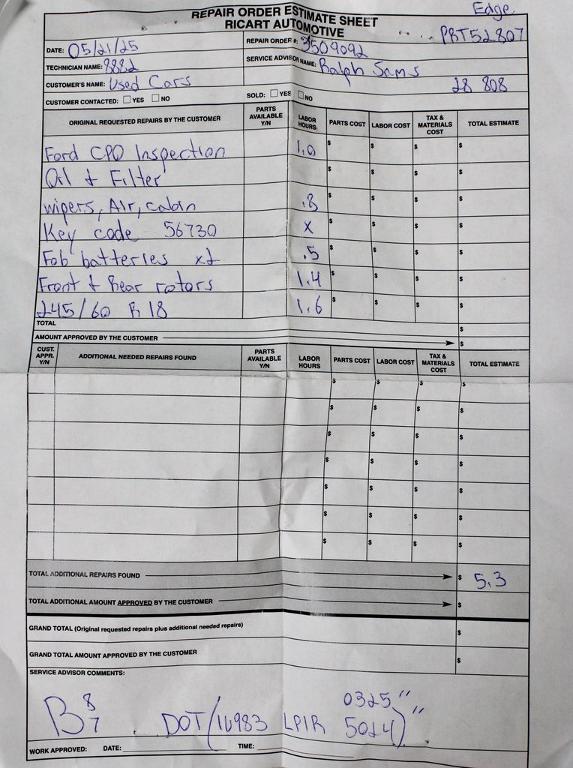 Edge.
REPAIR ORDER ESTIMATE SHEET
RICART AUTOMOTIVE
PBT52807
DATE: 05/21/25
REPAIR ORDER #: 3509092
TECHNICIAN NAME: 8882
SERVICE ADVISOR NAME: Ralph Sams
CUSTOMER'S NAME: Used Cars
28 808
CUSTOMER CONTACTED: ☐ YES ☐ NO
SOLD: ☐ YES ☐ NO
ORIGINAL REQUESTED REPAIRS BY THE CUSTOMER PARTS AVAILABLE Y/N LABOR HOURS PARTS COST LABOR COST TAX & MATERIALS COST TOTAL ESTIMATE
Ford CPO Inspection 1.0 $ $ $ $
Oil & Filter $ $ $ $
wipers, Air, cabin .8 $ $ $ $
Key code 56730 x $ $ $ $
Fob batteries x2 .5 $ $ $ $
Front & Rear rotors 1.4 $ $ $ $
245/60 R 18 1.6 $ $ $ $
TOTAL $
AMOUNT APPROVED BY THE CUSTOMER $
CUST. APPR. Y/N ADDITIONAL NEEDED REPAIRS FOUND PARTS AVAILABLE Y/N LABOR HOURS PARTS COST LABOR COST TAX & MATERIALS COST TOTAL ESTIMATE
$ $ $ $
$ $ $ $
$ $ $ $
$ $ $ $
$ $ $ $
$ $ $ $
$ $ $ $
TOTAL ADDITIONAL REPAIRS FOUND $ 5.3
TOTAL ADDITIONAL AMOUNT APPROVED BY THE CUSTOMER $
GRAND TOTAL (Original requested repairs plus additional needed repairs) $
GRAND TOTAL AMOUNT APPROVED BY THE CUSTOMER $
SERVICE ADVISOR COMMENTS:
B 8 0325 "
7 DOT (16983 LP1R 5024) "
WORK APPROVED: DATE: TIME: